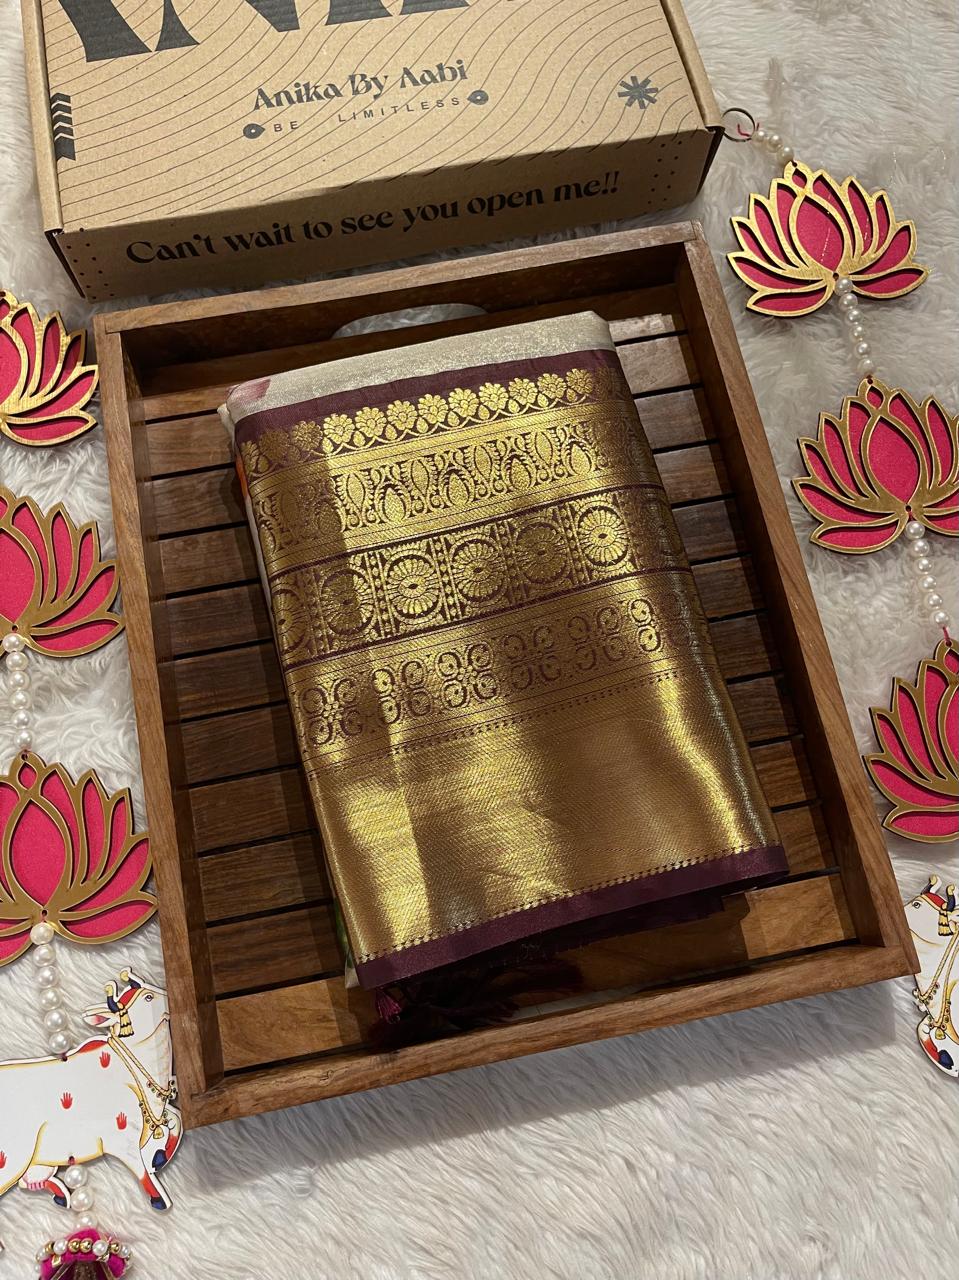 Anika By Aabi
BE LIMITLESS
Can't wait to see you open me!!